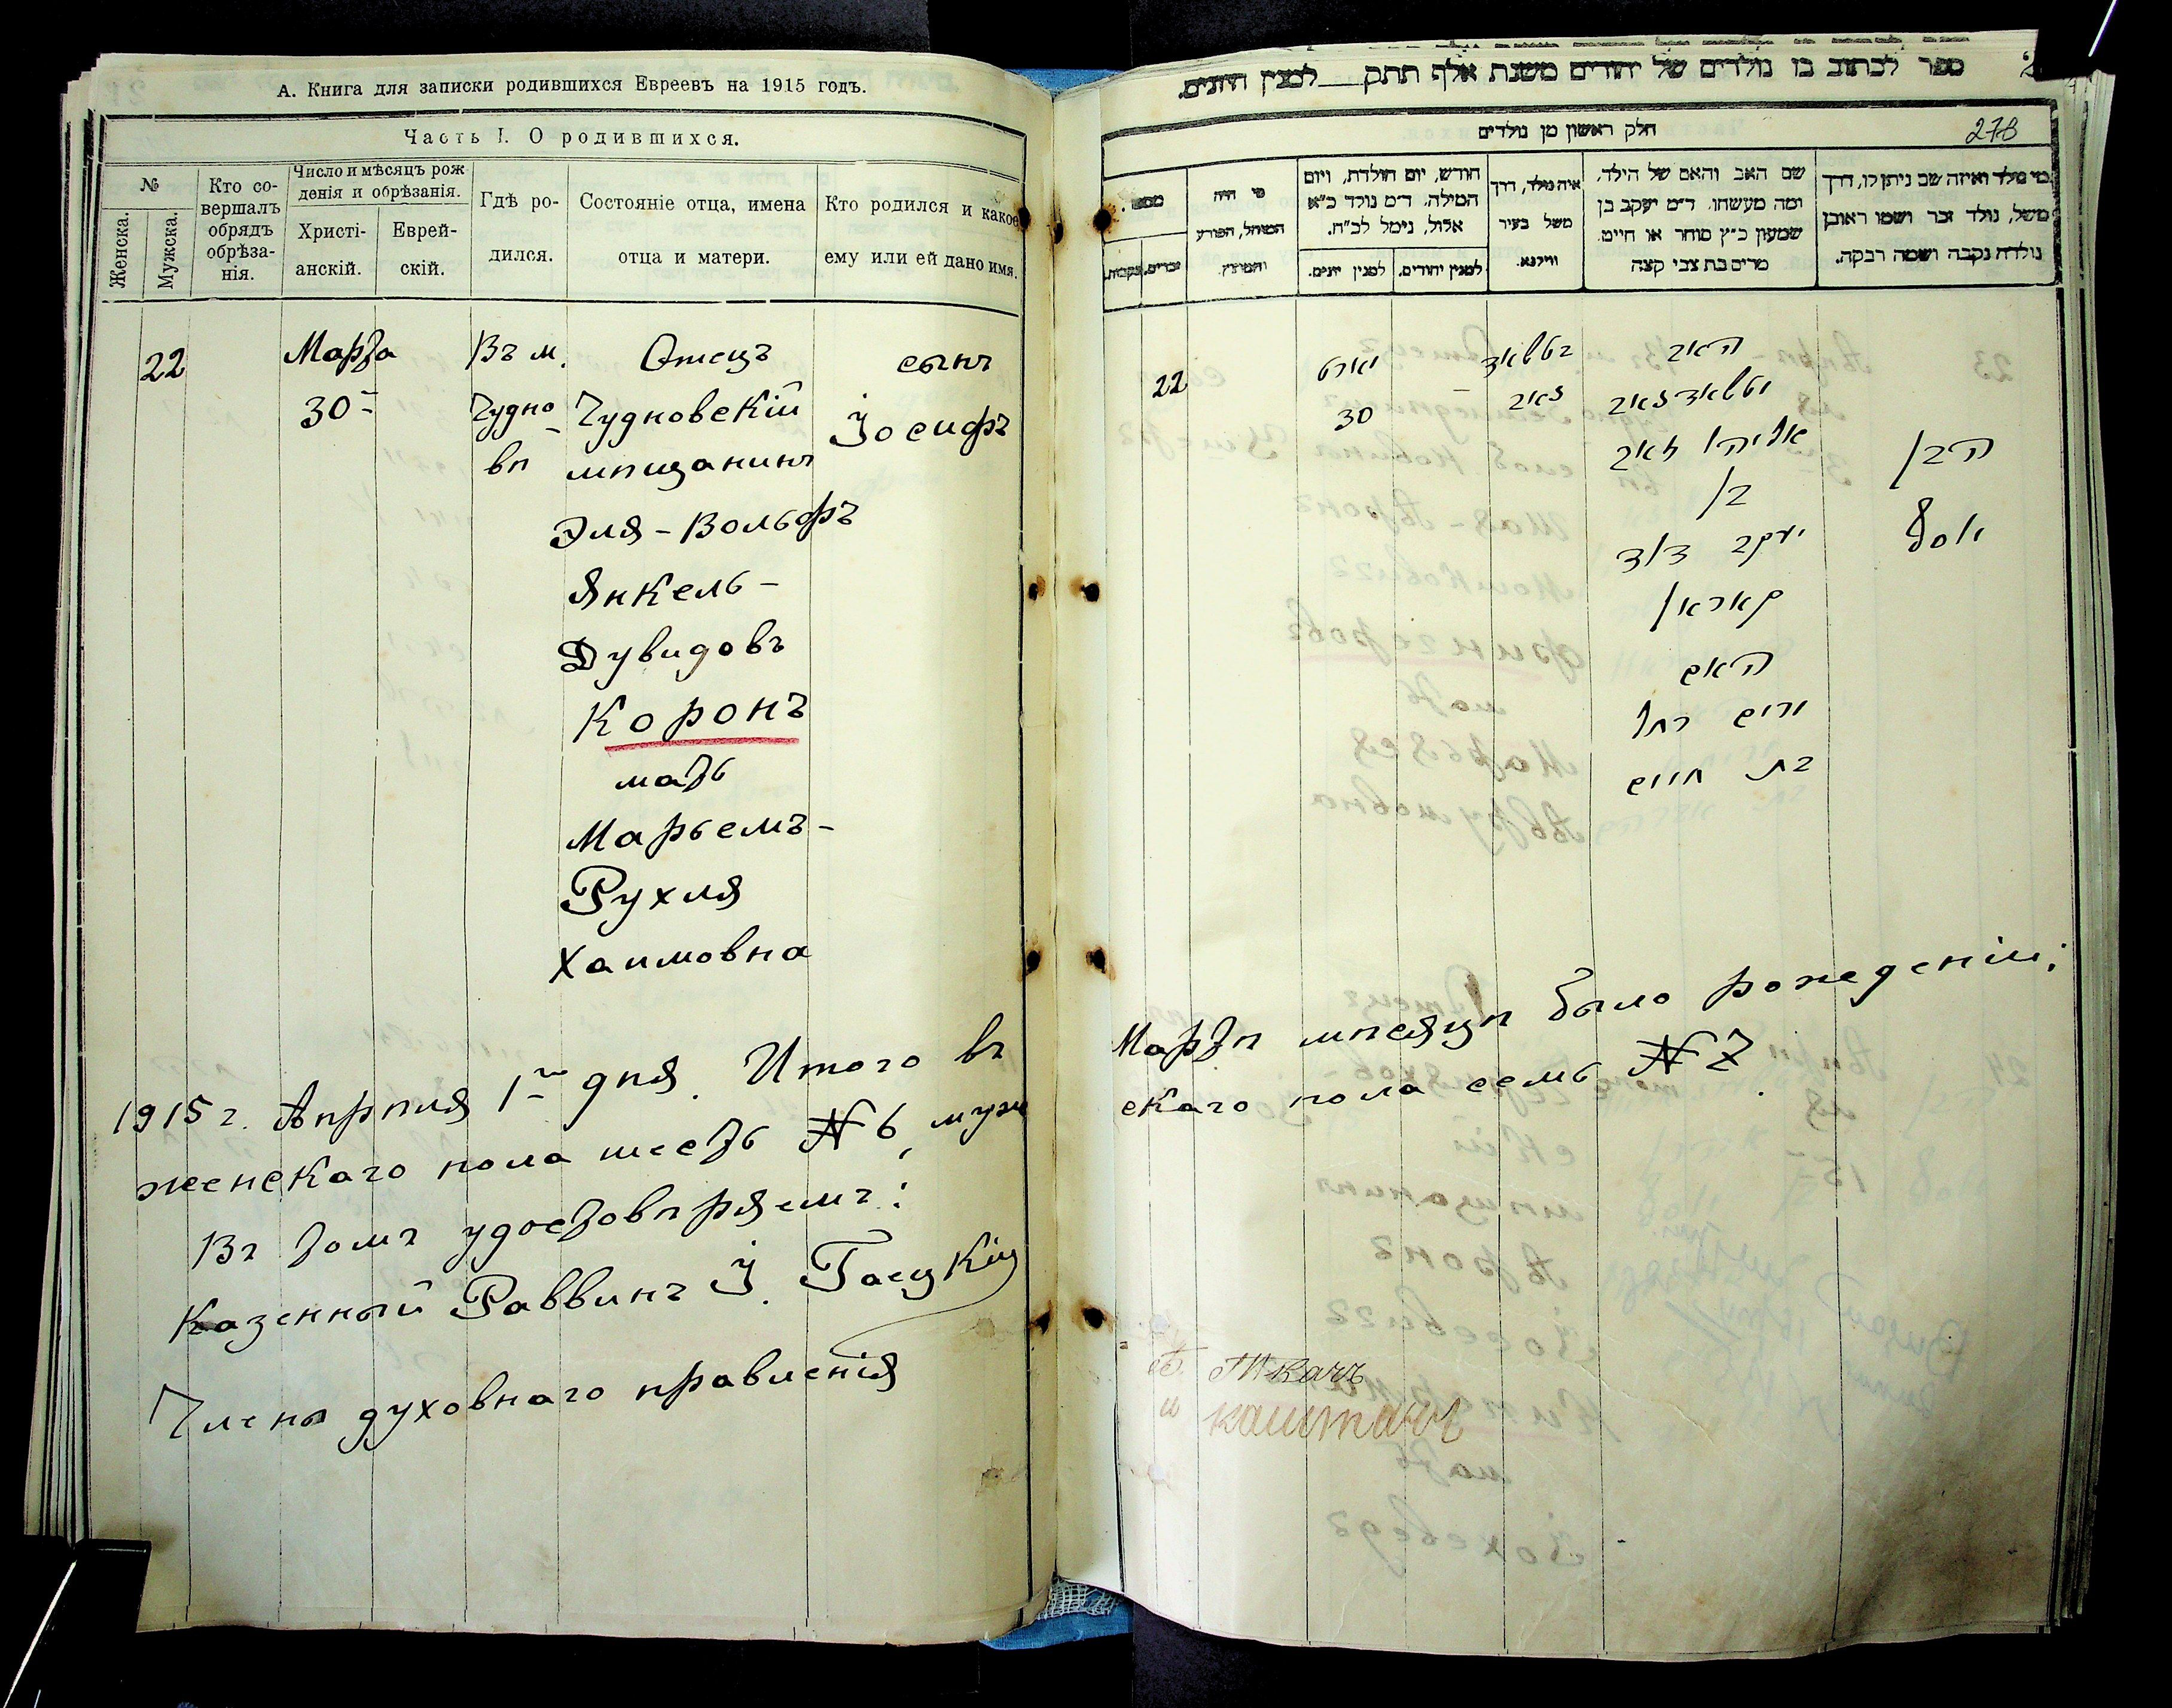 А. Книга для записки родившихся Евреевъ на 1915 годъ.
Часть I. О родившихся.
№
Женска.
Мужска.
Кто со-
вершалъ
обрядъ
обрѣза-
нія.
Число и мѣсяцъ рож
денія и обрѣзанія.
Христі-
анскій.
Еврей-
скій.
Гдѣ ро-
дился.
Состояніе отца, имена
отца и матери.
Кто родился и какое
ему или ей дано имя.
22
Марта
30
Въ м.
Чудно
вѣ
Отецъ
Чудновскій
мѣщанинъ
Эля-Вольфъ
Янкель-
Дувидовъ
Коронъ
мать
Марьемъ-
Рухля
Хаимовна
сынъ
Іосифъ
1915 г. Апрѣля 1го дня. Итого въ
женскаго пола шесть № 6, муж
Въ томъ удостовѣряемъ:
Казенный Раввинъ І. Гаецкій
Члены духовнаго правленія
ספר לכתוב בו נולדים של יהודים משנת אלף תתק למנין היונים.
חלק ראשון מן נולדים
278
מי נולד ואיזה שם ניתן לו, דרך
משל, נולד זכר ושמו ראובן
נולדה נקבה ושמה רבקה.
שם האב והאם של הילד,
ומה מעשהו. ד״מ יעקב בן
שמעון כ״ץ סוחר או חייט.
מרים בת צבי קצה
איה נולד, דרך
משל בעיר
ווילנא.
חודש, יום הולדת, ויום
המילה. ד״מ נולד כ״א
אלול, נימל לכ״ח.
למנין יהודים.
למנין יונים.
מי היה
המוהל, הפורע
והמוצץ.
מספר.
זכרים.
נקבות.
22
מארט
30
האב
אליהו זאב
בן
יעקב דוד
קאראן
האם
מרים רחל
בת חיים
הבן
יוסף
Мартѣ мѣсяцѣ было рожденій:
скаго пола семь № 7.
Ткачъ